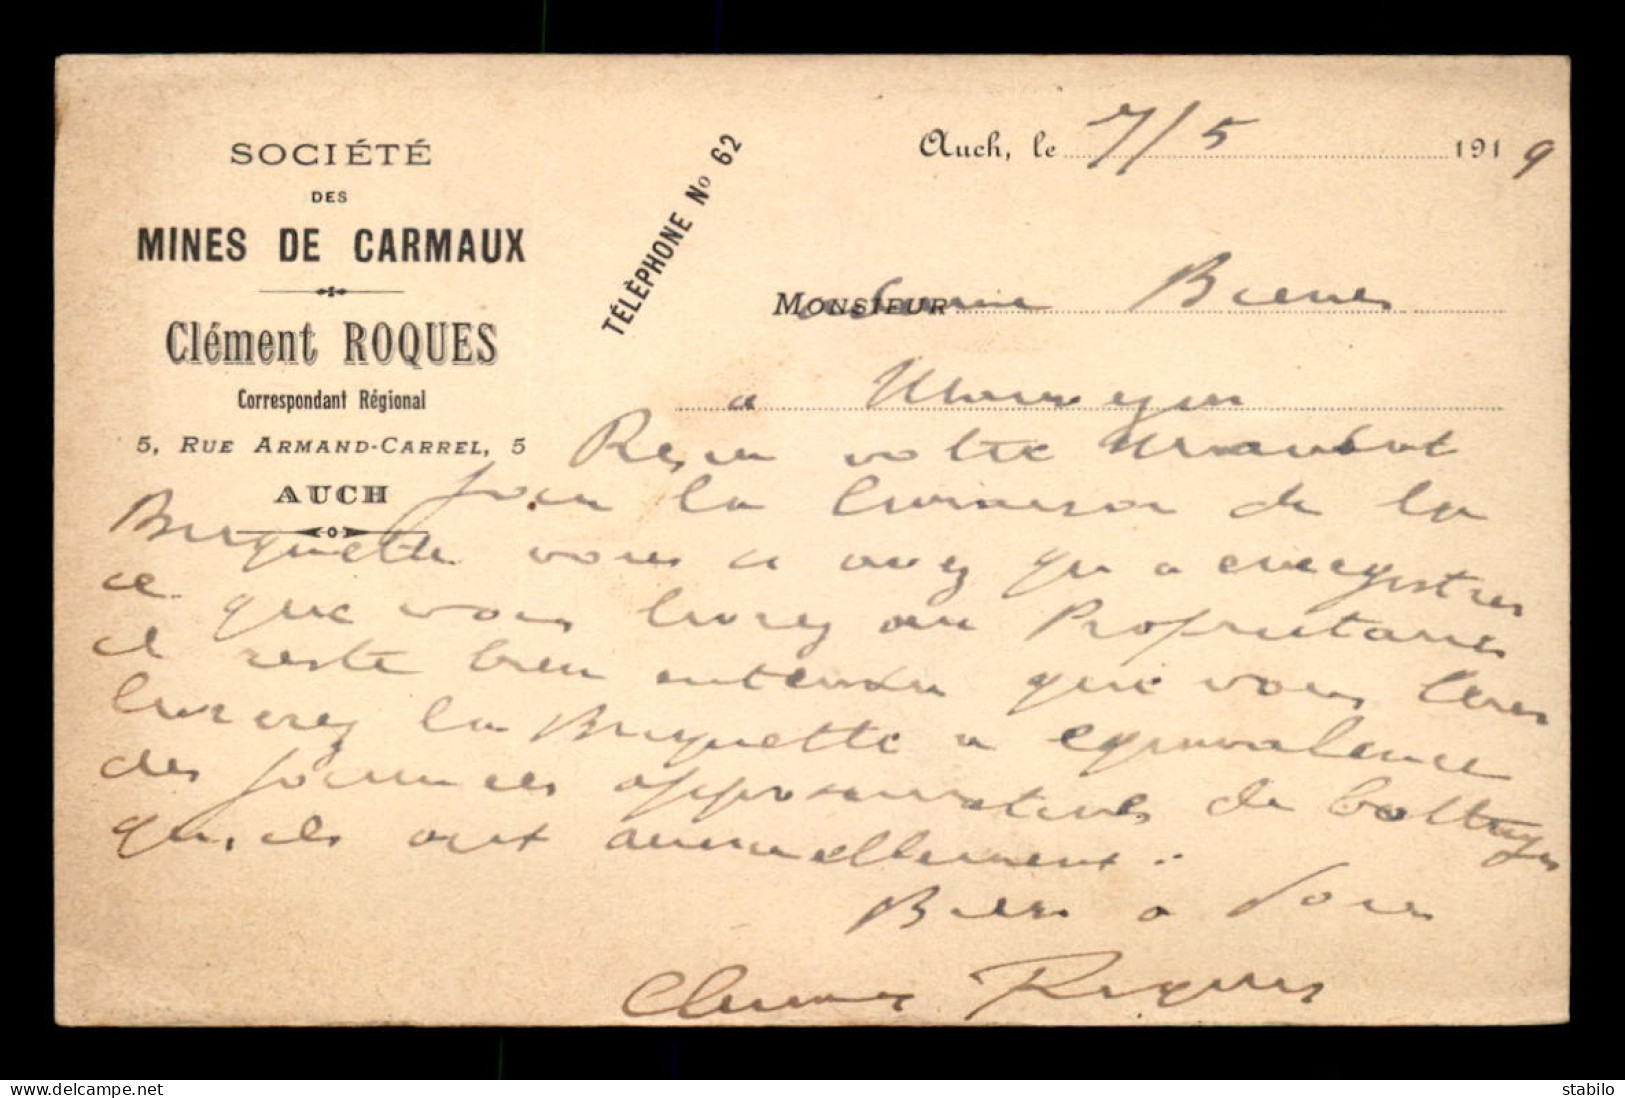 SOCIÉTÉ
DES
MINES DE CARMAUX
Clément ROQUES
Correspondant Régional
5, RUE ARMAND-CARREL, 5
AUCH
TÉLÈPHONE No 62
Auch, le 7/5 1919
MONSIEUR
a
Reçu votre
pour la livraison de la
Briquette vous a avez qu a enregistrer
ce que vous livrez au Proprietaires
il reste bien entendu que vous leur
livrerez la Briquette a equivalence
des journees approximatives de battages
qu,ils ont annuellement.
Bien a Vous
Clement Roques
stabilo
www.delcampe.net